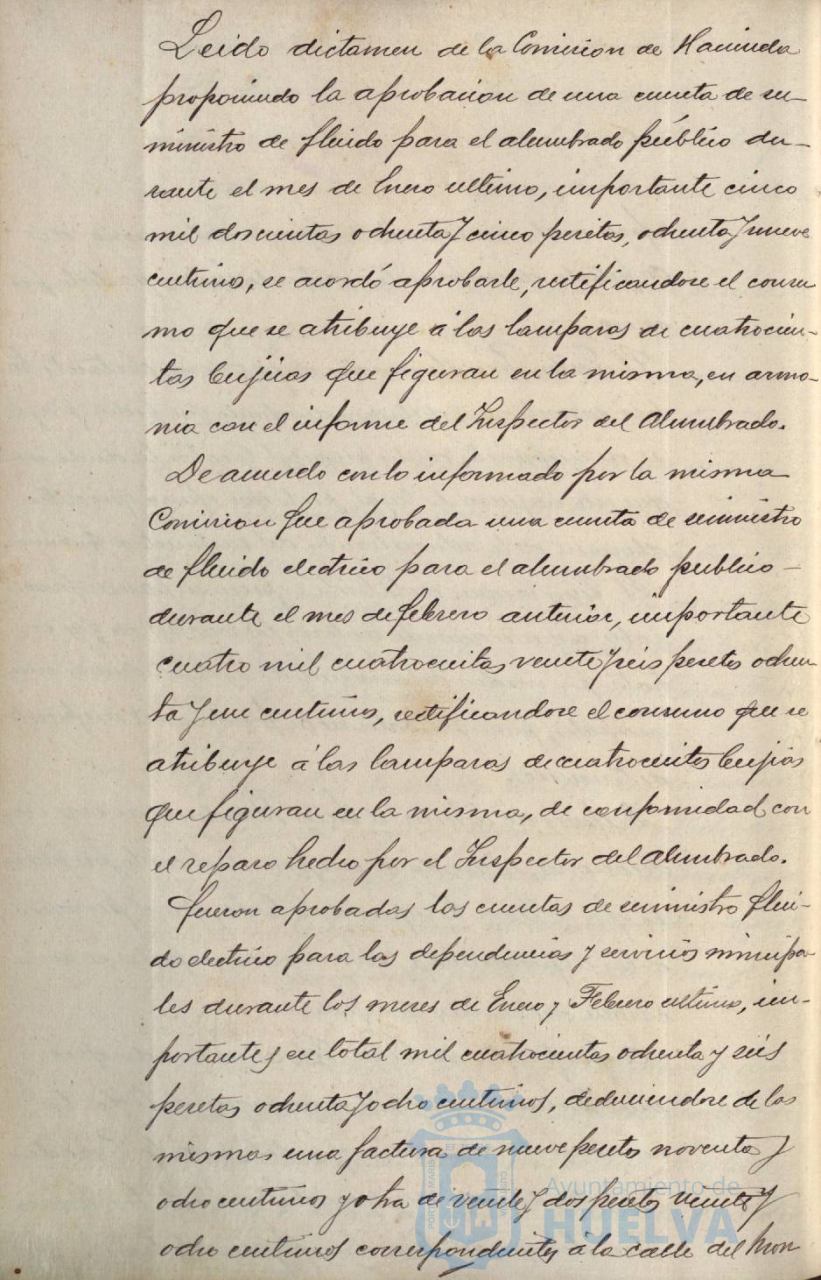 Leido dictamen de la Comision de Hacienda
proponiendo la aprobacion de una cuenta de su-
ministro de fluido para el alumbrado público du-
rante el mes de Enero ultimo, importante cinco
mil doscientas ochenta y cinco pesetas, ochenta y nueve
centimos, se acordó aprobarle, rectificandose el consu
mo que se atribuye á las lamparas de cuatrocien-
tas bujias que figuran en la misma, en armo-
nia con el informe del Inspector del Alumbrado.
De acuerdo con lo informado por la misma
Comision fue aprobada una cuenta de suministro
de fluido electrico para el alumbrado publico -
durante el mes de febrero anterior, importante
cuatro mil cuatrocientas veinte y seis pesetas ochen
ta y un centimos, rectificandose el consumo que se
atribuye á las lamparas de cuatrocientas bujias
que figuran en la misma, de conformidad con
el reparo hecho por el Inspector del Alumbrado.
fueron aprobadas las cuentas de suministro flui-
do electrico para las dependencias y servicios municipa-
les durante los meses de Enero y Febrero ultimo, im-
portantes en total mil cuatrocientas ochenta y seis
pesetas ochenta y ocho centimos, deduciendose de las
mismas una factura de nueve pesetas noventa y
ocho centimos y otra de veinte y dos pesetas veinte y
ocho centimos correspondientes á la calle del Mon
Ayuntamiento de
HUELVA